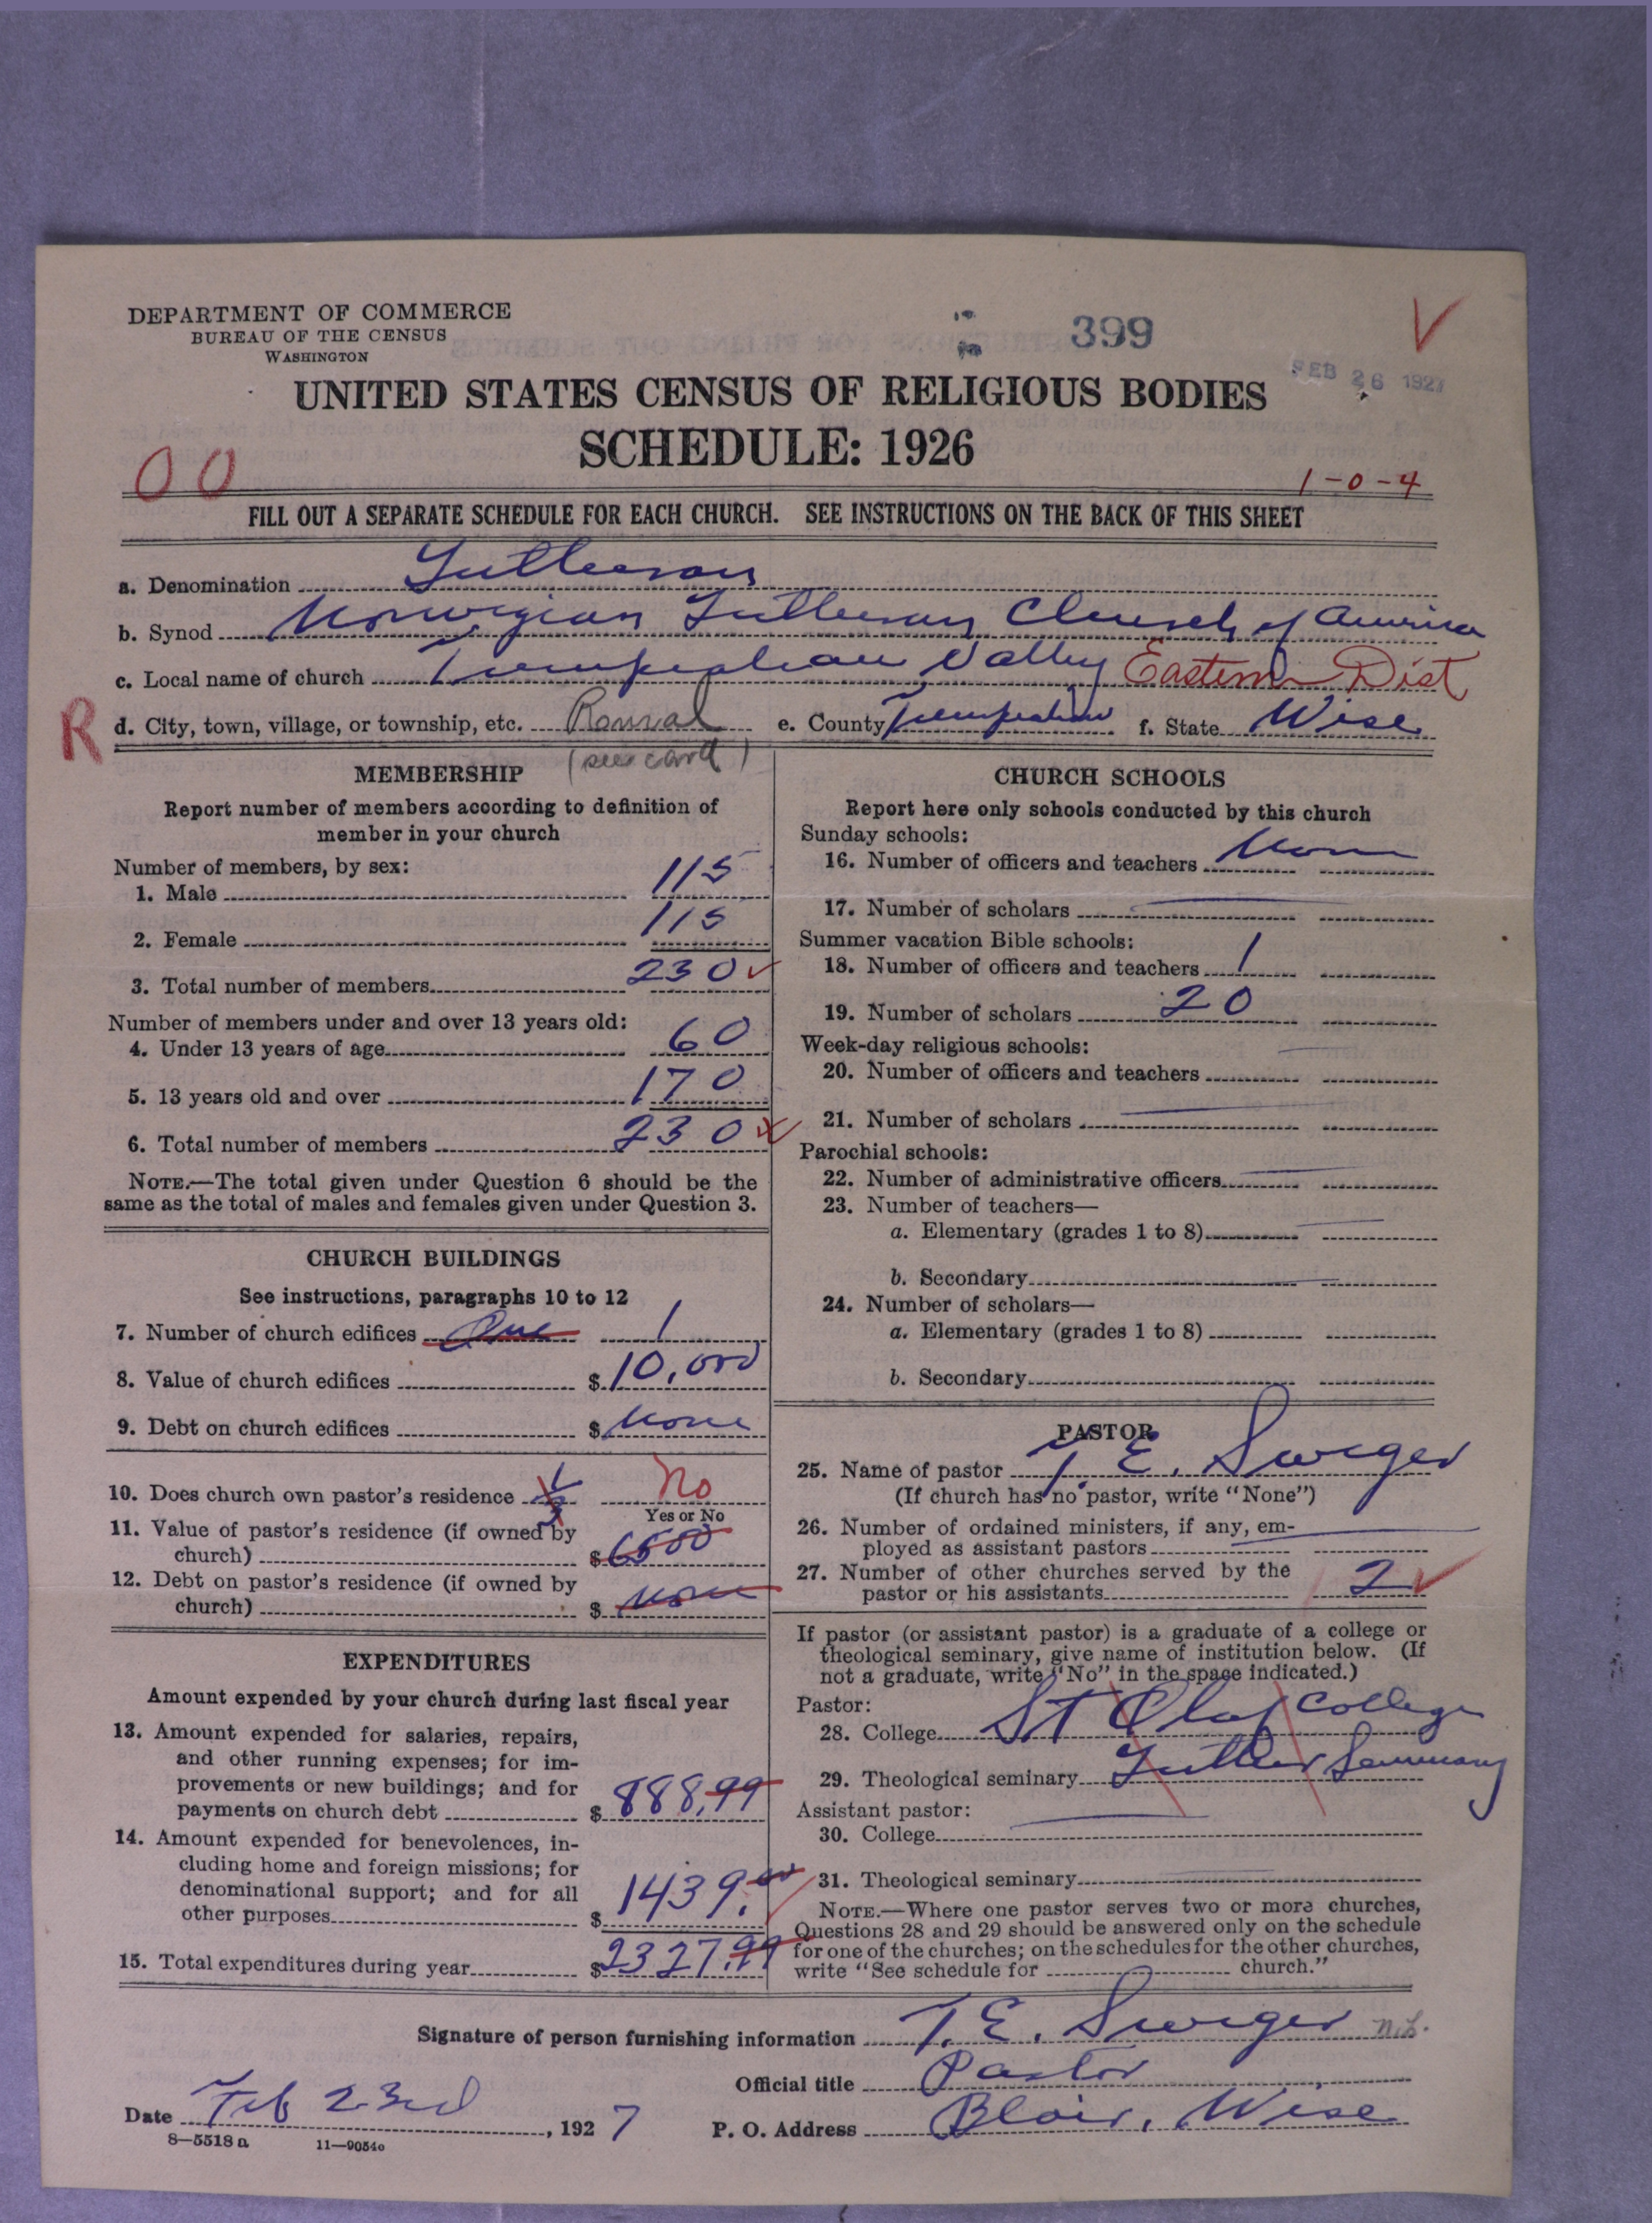 DEPARTMENT OF COMMERCE
BUREAU OF THE CENSUS
WASHINGTON
399
FEB 26 1927
UNITED STATES CENSUS OF RELIGIOUS BODIES
SCHEDULE: 1926
00
1-0-4
FILL OUT A SEPARATE SCHEDULE FOR EACH CHURCH. SEE INSTRUCTIONS ON THE BACK OF THIS SHEET
a. Denomination Lutheran
b. Synod Norwegian Lutheran Church of America
c. Local name of church Trempealeau Valley Eastern Dist
R
d. City, town, village, or township, etc. e. County Trempealeau f. State Wisc
(see card)
MEMBERSHIP
Report number of members according to definition of
member in your church
Number of members, by sex:
1. Male 115
2. Female 115
3. Total number of members 230
Number of members under and over 13 years old:
4. Under 13 years of age 60
5. 13 years old and over 170
6. Total number of members 230
NOTE.—The total given under Question 6 should be the
same as the total of males and females given under Question 3.
CHURCH BUILDINGS
See instructions, paragraphs 10 to 12
7. Number of church edifices One 1
8. Value of church edifices $ 10,000
9. Debt on church edifices $ None
10. Does church own pastor's residence 1/3 No
Yes or No
11. Value of pastor's residence (if owned by
church) $ 6500
12. Debt on pastor's residence (if owned by
church) $ None
EXPENDITURES
Amount expended by your church during last fiscal year
13. Amount expended for salaries, repairs,
and other running expenses; for im-
provements or new buildings; and for
payments on church debt $ 888.99
14. Amount expended for benevolences, in-
cluding home and foreign missions; for
denominational support; and for all
other purposes $ 1439.00
15. Total expenditures during year $ 2327.99
CHURCH SCHOOLS
Report here only schools conducted by this church
Sunday schools:
16. Number of officers and teachers None
17. Number of scholars
Summer vacation Bible schools:
18. Number of officers and teachers 1
19. Number of scholars 20
Week-day religious schools:
20. Number of officers and teachers
21. Number of scholars
Parochial schools:
22. Number of administrative officers
23. Number of teachers—
a. Elementary (grades 1 to 8)
b. Secondary
24. Number of scholars—
a. Elementary (grades 1 to 8)
b. Secondary
PASTOR
25. Name of pastor T. E. Sweger
(If church has no pastor, write "None")
26. Number of ordained ministers, if any, em-
ployed as assistant pastors
27. Number of other churches served by the
pastor or his assistants 2
If pastor (or assistant pastor) is a graduate of a college or
theological seminary, give name of institution below. (If
not a graduate, write "No" in the space indicated.)
Pastor:
28. College St Olaf College
29. Theological seminary Luther Seminary
Assistant pastor:
30. College
31. Theological seminary
NOTE.—Where one pastor serves two or more churches,
Questions 28 and 29 should be answered only on the schedule
for one of the churches; on the schedules for the other churches,
write "See schedule for church."
Signature of person furnishing information T. E. Sweger
Official title Pastor
Date Feb 23rd, 1927 P. O. Address Blair, Wisc
8—5518 a 11—9054o